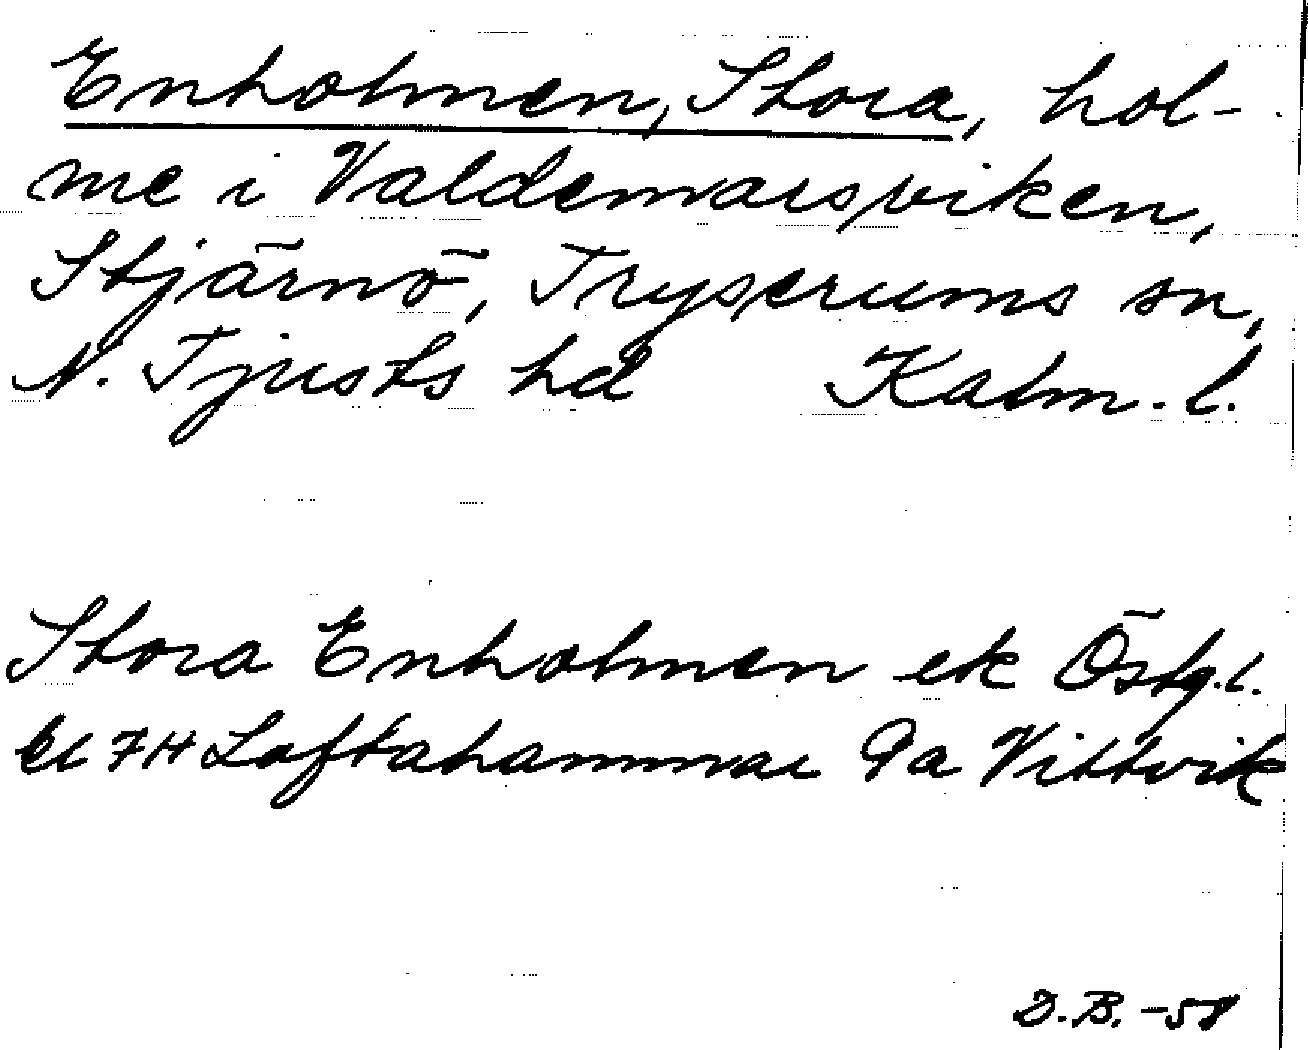 Enholmen, Stora, hol-
me i Valdemarsviken,
Stjärnö, Tryserums sn,
N. Tjusts hd Kalm. l.
Stora Enholmen ek Östg.l.
bl 7H Loftahammar 9a Vittvik
D.B. -58